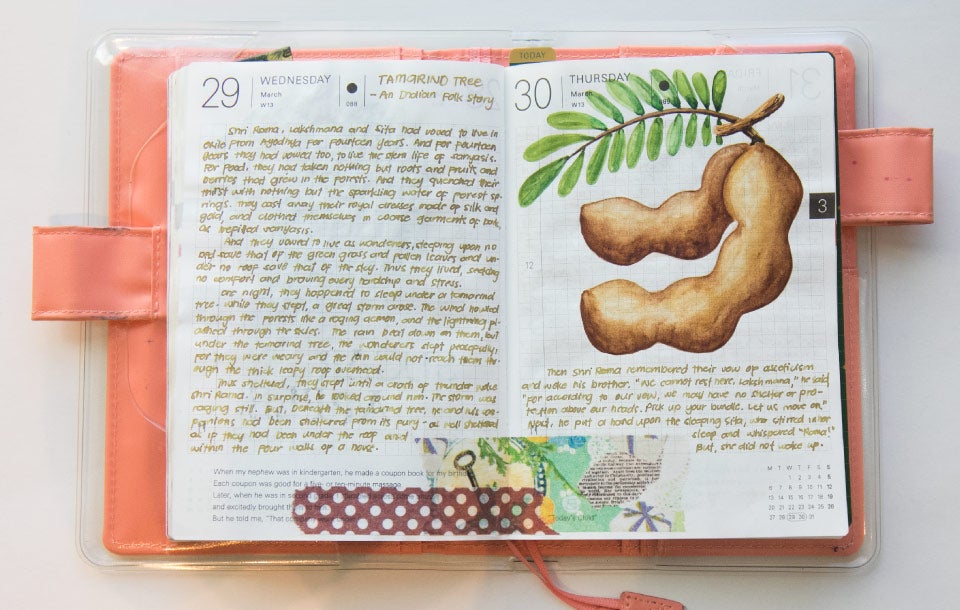 29
WEDNESDAY
March
W13
088
TAMARIND TREE
- An Indian Folk Story
Shri Rama, Lakshmana and Sita had vowed to live in
exile from Ayodhya for fourteen years. And for fourteen
years they had vowed too, to live the stern life of vanyasis.
For food, they had taken nothing but roots and fruits and
berries that grew in the forests. And they quenched their
thirst with nothing but the sparkling water of forest sp-
rings. They cast away their royal dresses made of silk and
gold, and clothed themselves in coarse garments of bark,
as befitted vanyasis.
And they vowed to live as wanderers, sleeping upon no
bed save that of the green grass and fallen leaves and un-
der no roof save that of the sky. Thus they lived, seeking
no comfort and braving every hardship and stress.
One night, they happened to sleep under a tamarind
tree. While they slept, a great storm arose. The wind howled
through the forests like a raging demon, and the lightning fl-
ashed through the skies. The rain beat down on them, but
under the tamarind tree, the wanderers slept peacefully;
for they were weary and the rain could not reach them thr-
ough the thick leafy roof overhead.
Thus sheltered, they slept until a crash of thunder woke
Shri Rama. In surprise, he looked around him. The storm was
raging still. But, beneath the tamarind tree, he and his com-
panions had been sheltered from its fury - as well sheltered
as if they had been under the roof and
within the four walls of a house.
When my nephew was in kindergarten, he made a coupon book for my birth
Each coupon was good for a five- or ten-minute massage.
Later, when he was in seco
and excitedly brought th
But he told me, "That co
TODAY
30
THURSDAY
March
W13
089
3
12
Then Shri Rama remembered their vow of asceticism
and woke his brother. "We cannot rest here, Lakshmana," he said
"For according to our vow, we may have no shelter or pro-
tection above our heads. Pick up your bundle. Let us move on."
Next, he put a hand upon the sleeping Sita, who stirred
sleep and whispered "Rama!"
But, she did not wake up.
"Today's Child"
M T W T F S S
1 2 3 4 5
6 7 8 9 10 11 12
13 14 15 16 17 18 19
20 21 22 23 24 25 26
27 28 29 30 31